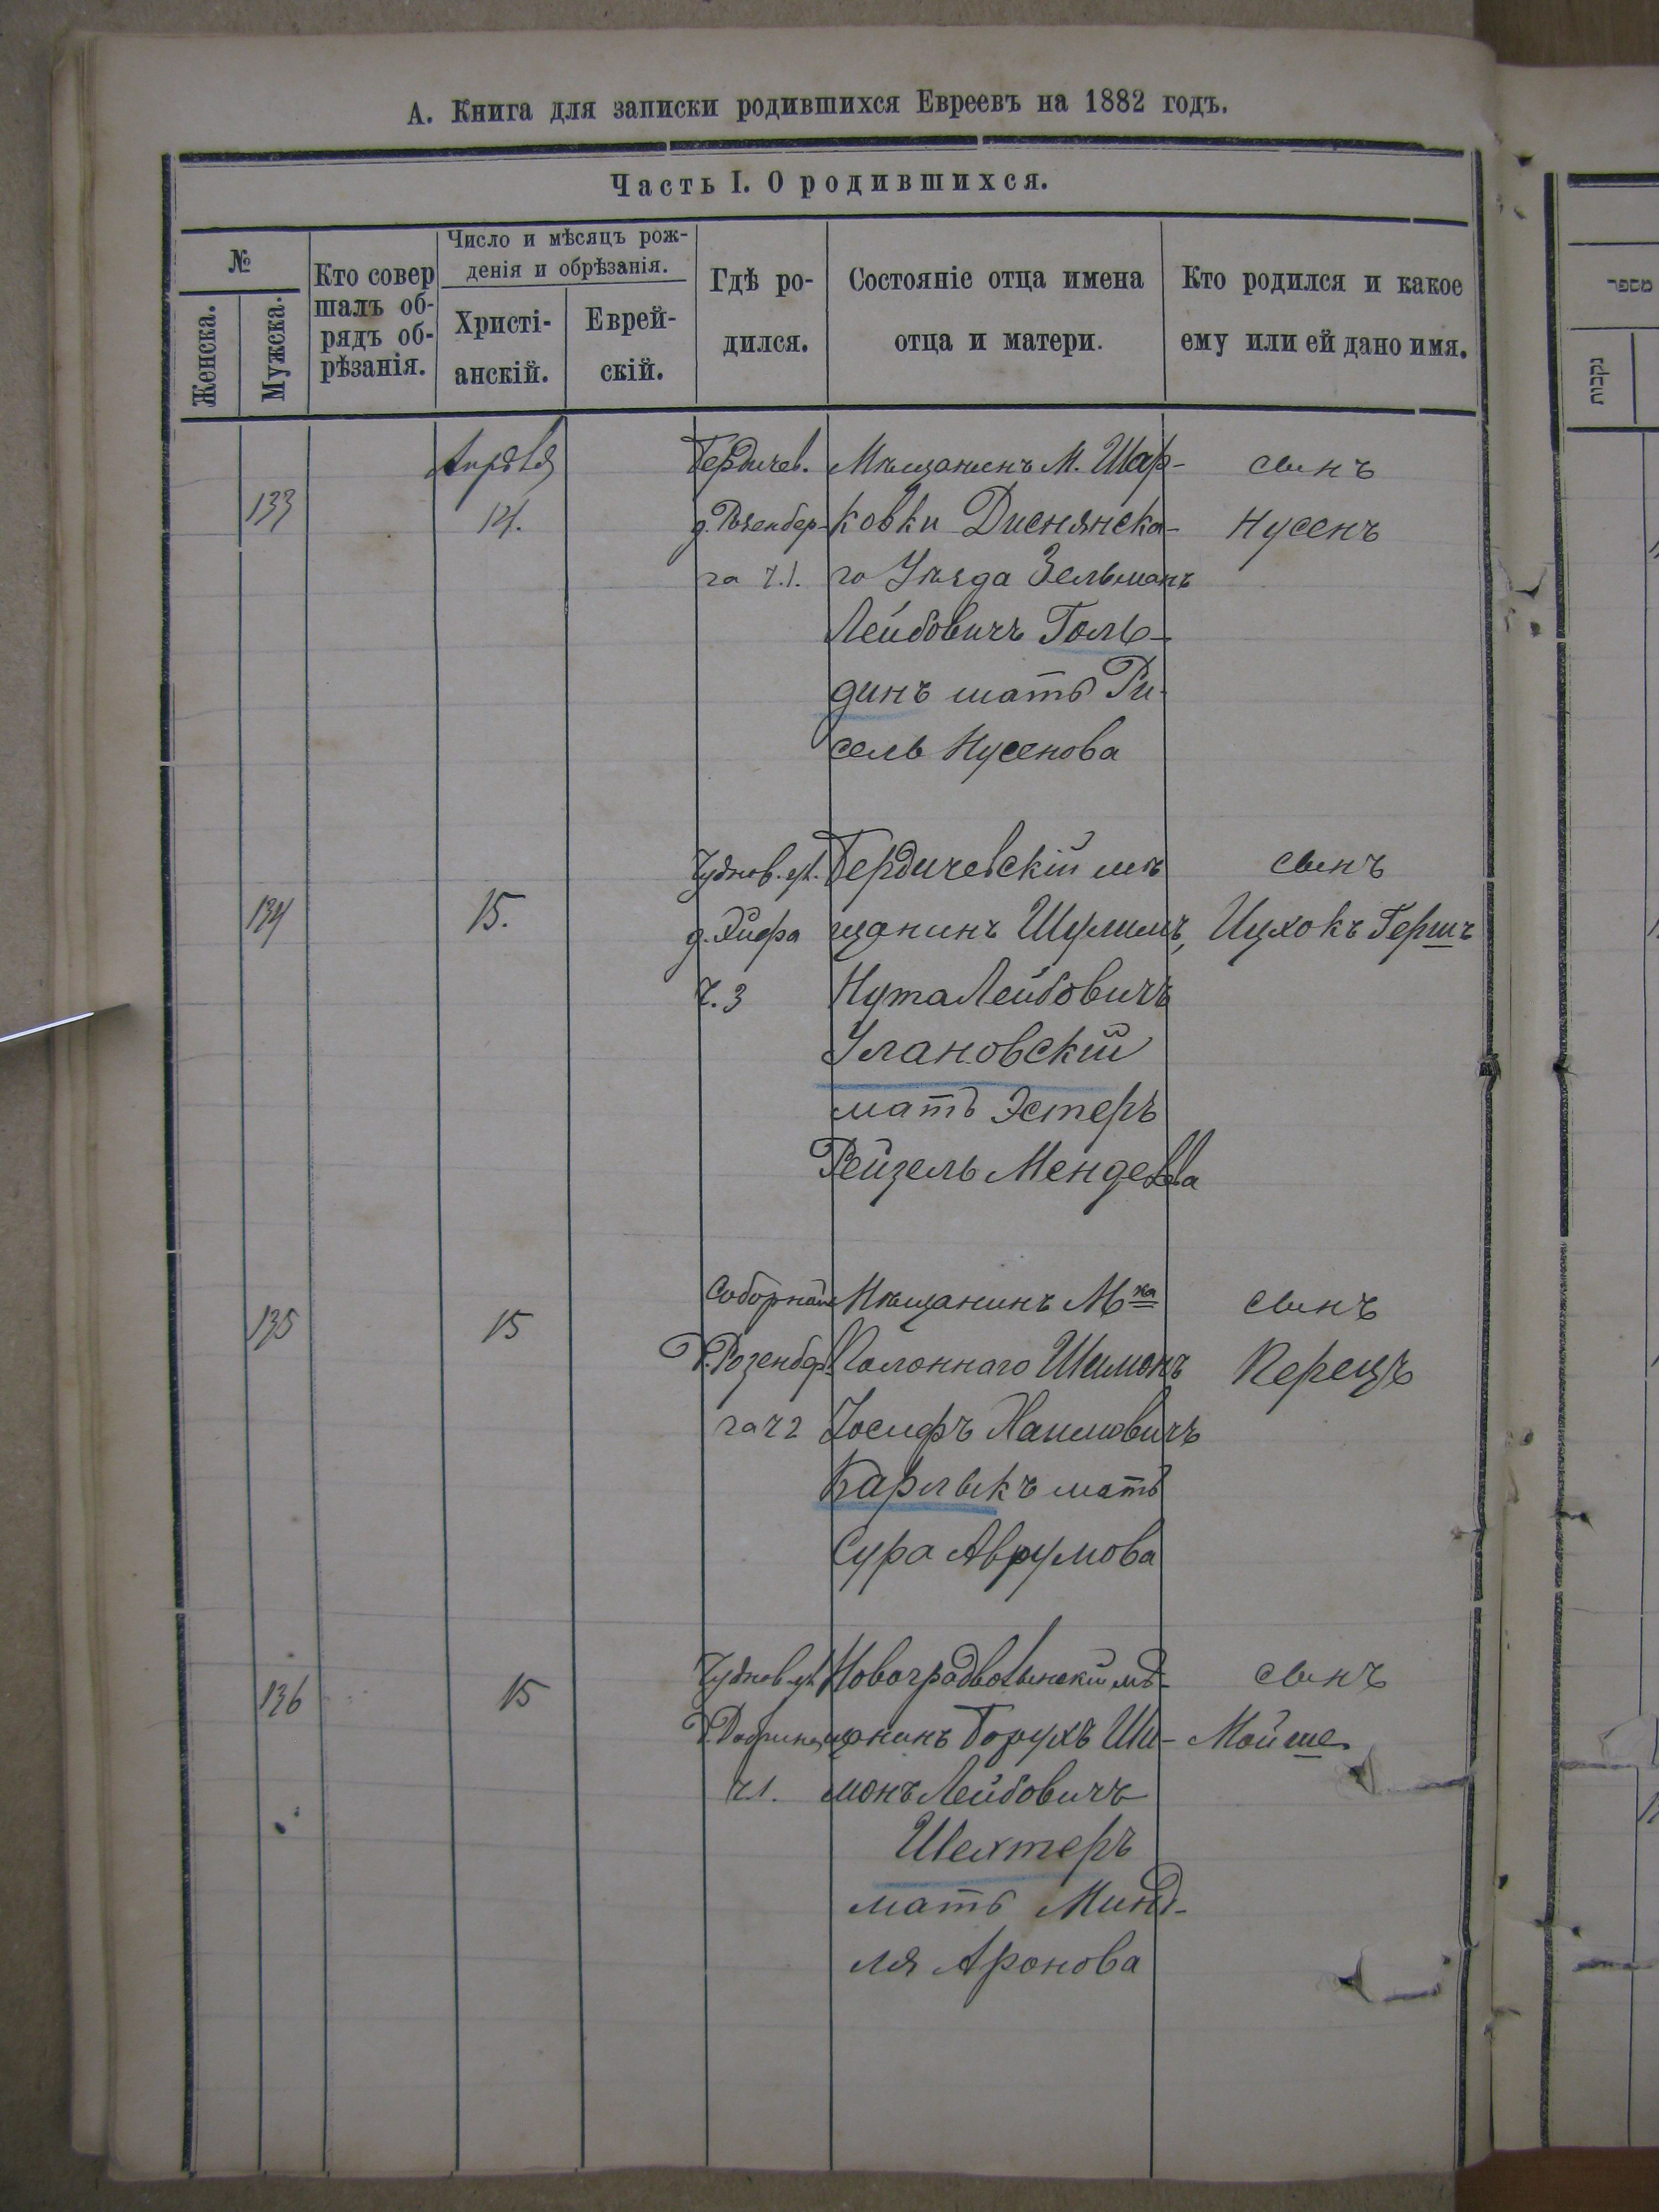 А. Книга для записки родившихся Евреевъ на 1882 годъ.
Часть I. О родившихся.
№
Женска.
Мужска.
Кто совер
шалъ об-
рядъ об-
рѣзанія.
Число и мѣсяцъ рож-
денія и обрѣзанія.
Христі-
анскій.
Еврей-
скій.
Гдѣ ро-
дился.
Состояніе отца имена
отца и матери.
Кто родился и какое
ему или ей дано имя.
133
Апрѣля
14.
Бердичев.
д. Розенбер-
га ч.1.
Мѣщанинъ М. Шар-
ковки Диснянска-
го Уѣзда Зельманъ
Лейбовичъ Голь-
динъ мать Ри-
сель Нусенова
сынъ
Нусенъ
134
15.
Чуднов. ул.
ч. 3
Бердичевскій мѣ
щанинъ Шулимъ,
Нута Лейбовичъ
Улановскій
мать Эстеръ
Рейзель Менделева
сынъ
Ицхокъ Гершъ
135
15
Соборная
д. Розенбер-
га ч 2
Мѣщанинъ М ка
Полоннаго Шимонъ
Іосифъ Хаимовичъ
Карлыкъ мать
Сура Аврумова
сынъ
Перецъ
136
15
Чуднов. ул.
ч1.
Новоградволынскій мѣ-
щанинъ Борухъ Ши-
монъ Лейбовичъ
Шехтеръ
мать Минд-
ля Аронова
сынъ
Мойше
מספר
נקבות